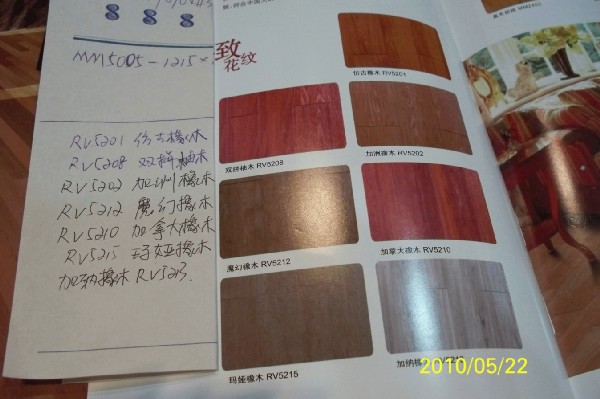 8 8 8
MM5005-1215×
RV5201 仿古橡木
RV5208 双拼柚木
RV5202 加州橡木
RV5212 魔幻橡木
RV5210 加拿大橡木
RV5215 玛娅橡木
加纳橡木 RV5213.
致
花纹
仿古橡木 RV5201
双拼柚木 RV5208
加洲橡木 RV5202
魔幻橡木 RV5212
加拿大橡木 RV5210
玛娅橡木 RV5215
加纳橡
2010/05/22